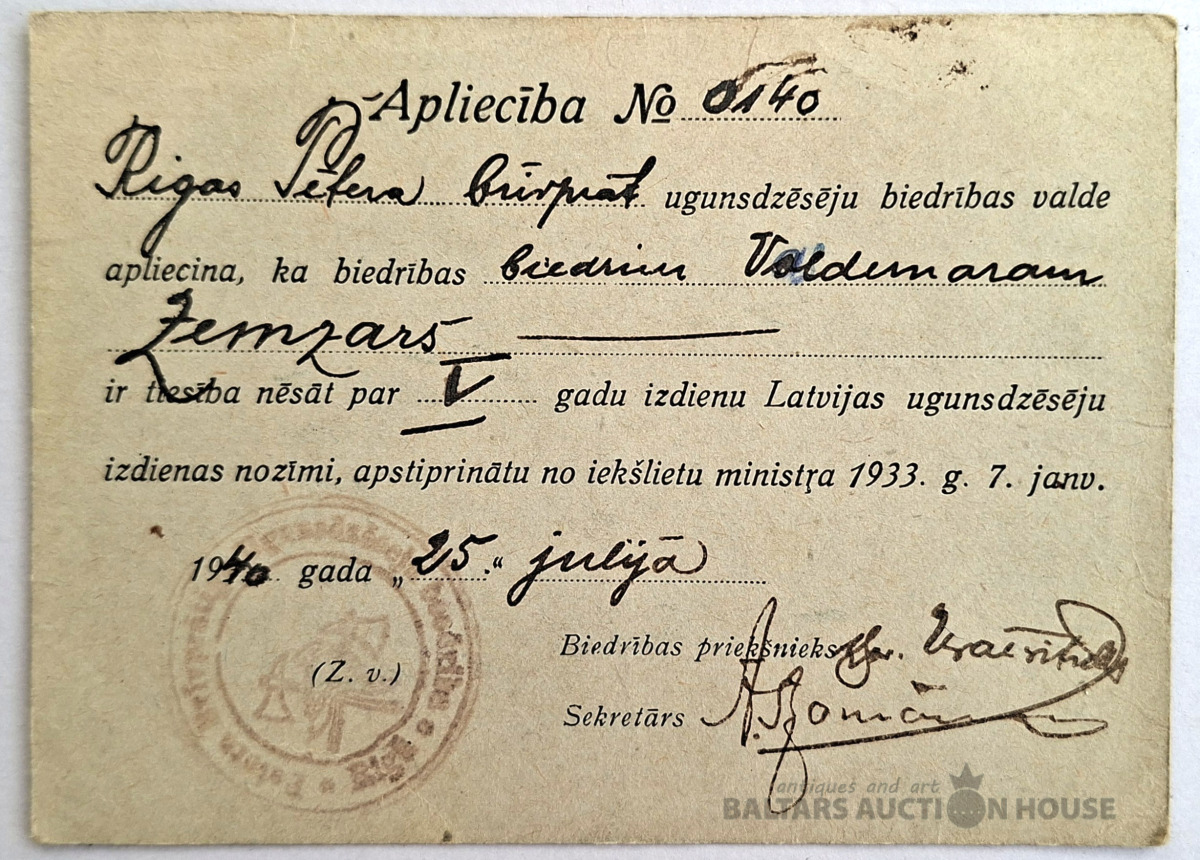 Apliecība № 0140
Rigas Pētera brīvprāt ugunsdzēsēju biedrības valde
apliecina, ka biedrības biedrim Voldemaram
Zemzars
ir tiesība nēsāt par V gadu izdienu Latvijas ugunsdzēsēju
izdienas nozīmi, apstiprinātu no iekšlietu ministŗa 1933. g. 7. janv.
1940 gada „25.“ julijā
Biedrības priekšnieks
(Z. v.)
Sekretārs
antiques and art
BALTARS AUCTION HOUSE